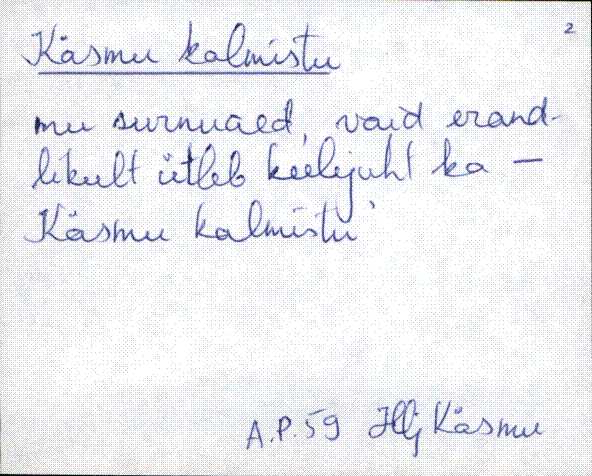 2
Käsmu kalmistu
mu surnuaed, vaid erand-
likult ütleb keelejuht ka –
Käsmu kalmistu'
A.P. 59 Hlj Käsmu